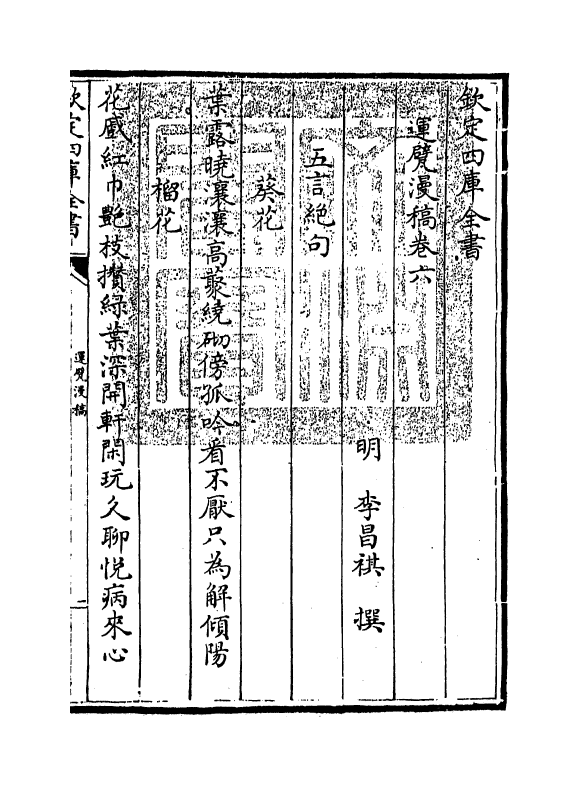 欽定四庫全書
運甓漫稿卷六
明 李昌祺 撰
五言絶句
葵花
葉露曉瀼瀼高藂繞砌傍孤吟看不厭只為解傾陽
榴花
花蹙紅巾艶枝攢緑葉深開軒閑玩久聊悦病來心
欽定四庫全書
運甓漫稿
一